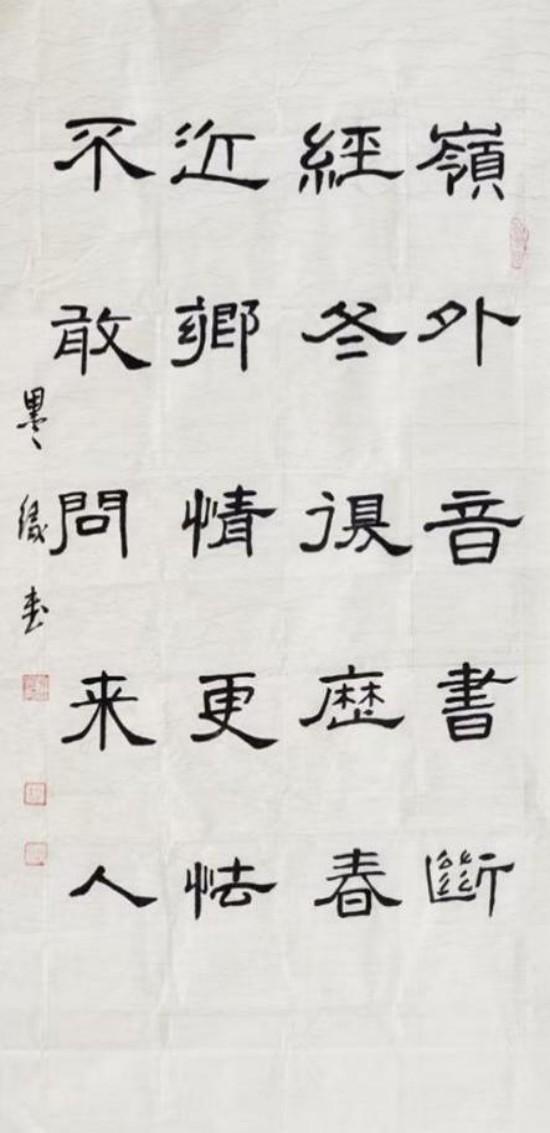 嶺外音書斷
經冬復歷春
近鄉情更怯
不敢問来人
墨緣書